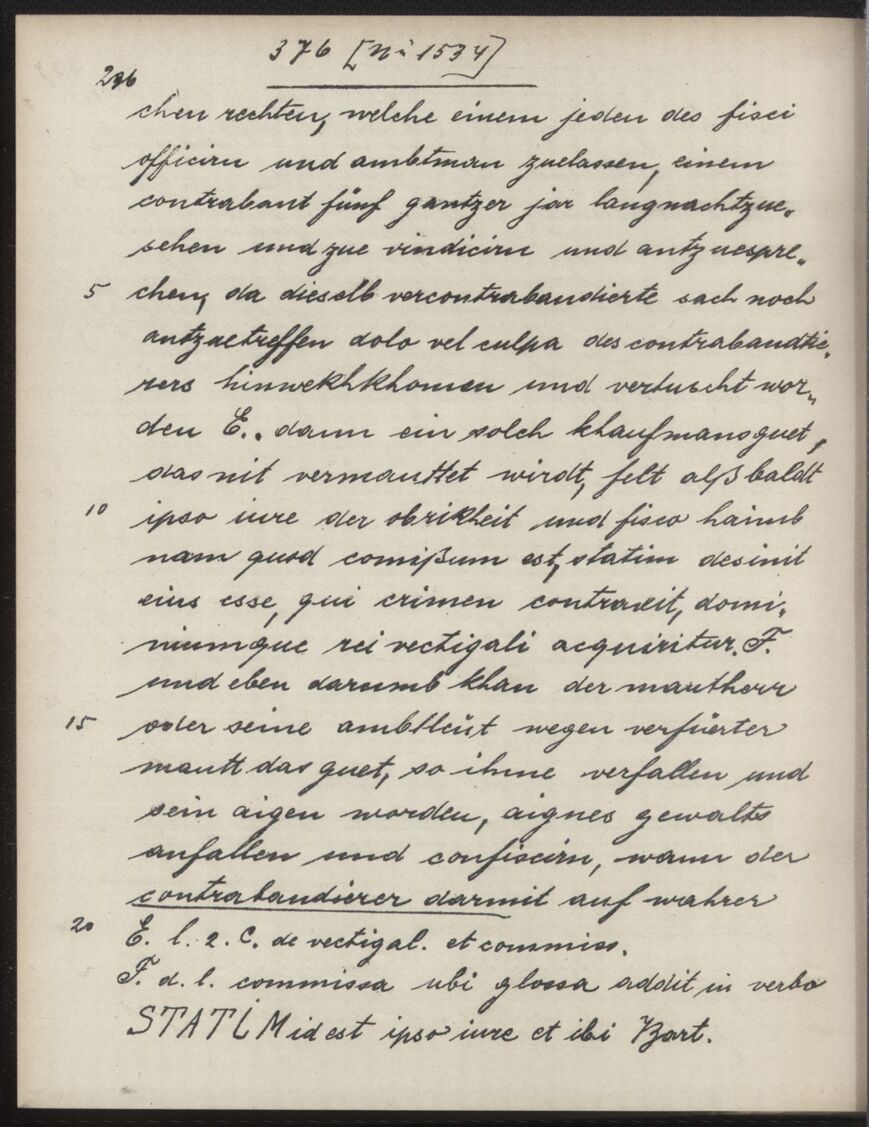 376 [Nr 1534]
296
chen rechten, welche einem jeden des fisci
officirn und ambtman zuelassen, einem
contrabant fünf gantzer jar langnachtzue„
sehen und zue vindicirn und antzuespre„
5 chen, da dieselb vercontrabandierte sach noch
antzuetreffen dolo vel culpa des contrabandtie„
rers hinwekhkhomen und vertuscht wor„
den E.. dann ein solch khaufmansguet,
das nit vermauttet wirdt, felt alßbaldt
10 ipso iure der obrikheit und fisco haimb
nam quod comißum est, statim desinit
eius esse, qui crimen contraxit, domi„
niumque rei vectigali acquiritur. F.
und eben darumb khan der mautherr
15 oder seine ambtleüt wegen verfüerter
mautt das guet, so ihme verfallen und
sein aigen worden, aignes gewalts
anfallen und confiscirn, wann der
contrabandierer darmit auf wahrer
20 E. l. 2. C. de vectigal. et commiss.
F. d. l. commissa ubi glossa addit in verbo
STATIM id est ipso iure et ibi Bart.